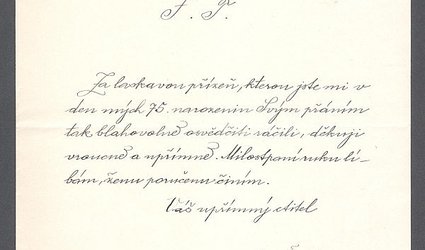 T. T.
Za laskavou přízeň, kterou jste mi v
den mých 75. narozenin Svým přáním
tak blahovolně osvědčiti ráčili, děkuji
vroucně a upřímně. Milostpaní ruku lí-
bám, ženu poručenu činím.
Váš upřímný ctitel